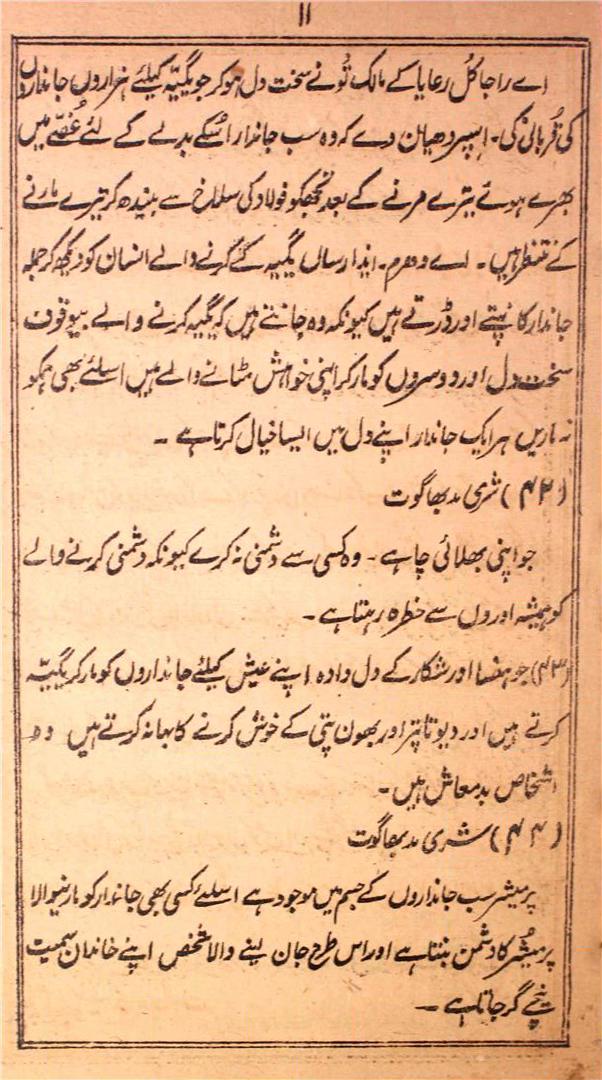 ۱۱
اے راجا کُل رعایا کے مالک تُونے سخت دل ہو کر جو یگیّہ کیلئے ہزاروں جانداروں
کی قُربانی کی۔ اِسپر دھیان دے کہ وہ سب جاندار اُسکے بدلے کے لئے غُصّے میں
بھرے ہوئے تیرے مرنے کے بعد تجھکو فولاد کی سلاخ سے بیندھ کر تیرے مارنے
کے منتظر ہیں۔ اے ودھرم۔ ایذا رساں یگیہ کے کرنے والے انسان کو دیکھ کر جملہ
جاندار کانپتے اور ڈرتے ہیں کیونکہ وہ جانتے ہیں کہ یگیہ کرنے والے بیوقوف
سخت دل اور دوسروں کو مار کر اپنی خواہش مٹانے والے ہیں اسلئے بھی ہمکو
نہ ماریں ہر ایک جاندار اپنے دل میں ایسا خیال کرتا ہے۔
(۴۲) شری مد بھاگوت
جو اپنی بھلائی چاہے۔ وہ کسی سے دشمنی نہ کرے کیونکہ دشمنی کرنے والے
کو ہمیشہ اوروں سے خطرہ رہتا ہے۔
(۴۳) جو ہنسا اور شکار کے دل دادہ اپنے عیش کیلئے جانداروں کو مار کر یگیّہ
کرتے ہیں اور دیوتا پتر اور بھون پتی کے خوش کرنے کا بہانہ کرتے ہیں وہ
اشخاص بدمعاش ہیں۔
(۴۴) شری مد بھاگوت
پرمیشر سب جانداروں کے جسم میں موجود ہے اسلئے کسی بھی جاندار کو مارنیوالا
پرمیشر کا دشمن بنتا ہے اور اس طرح جان لینے والا شخص اپنے خاندان سمیت
نیچے گر جاتا ہے۔